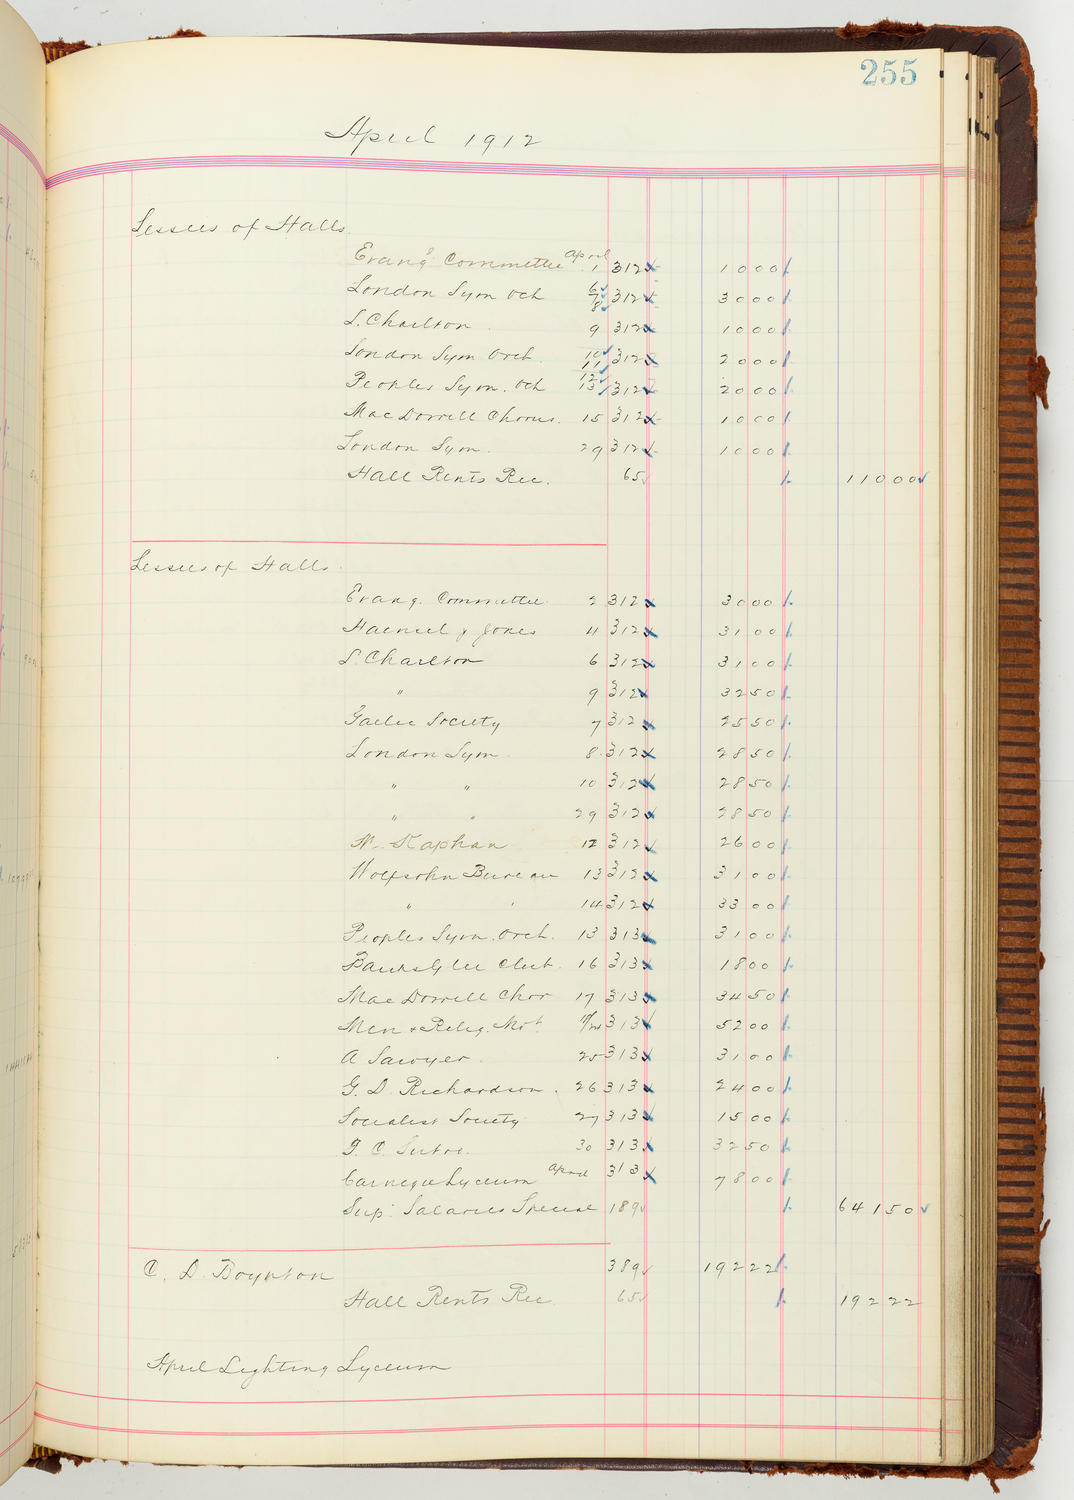 255
April 1912
Lessees of Halls
Evang'l Committee April 1 312 1000
London Sym Och 6 7 8 312 3000
L. Charlton 9 312 1000
London Sym Orch. 10 11 312 2000
Peoples Sym. Och 12 13 312 2000
Mac Dowell Chorus. 15 312 1000
London Sym. 29 312 1000
Hall Rents Rec. 65 11000
Lessees of Halls
Evang. Committee 2 312 3000
Haensel & Jones 4 312 3100
L. Charlton 6 312 3100
" 9 312 3250
Gaelic Society 7 312 2550
London Sym. 8 312 2850
" " 10 312 2850
" " 29 312 2850
Kaphan 12 312 2600
Wolfsohn Bureau 13 312 3100
" " 14 312 3300
Peoples Sym. Orch. 13 313 3100
Banks Glee Club. 16 313 1800
Mac Dowell Chor 17 313 3450
Men & Relig. Mot. 313 5200
A Sawyer. 25 313 3100
G. D. Richardson. 26 313 2400
Socialist Society 27 313 1500
Sutro. 30 313 3250
Carnegie Lyceum April 313 7800
Sup. Salaries Special 189 64150
C. D. Boynton 389 19222
Hall Rents Rec 65 19222
April Lighting Lyceum